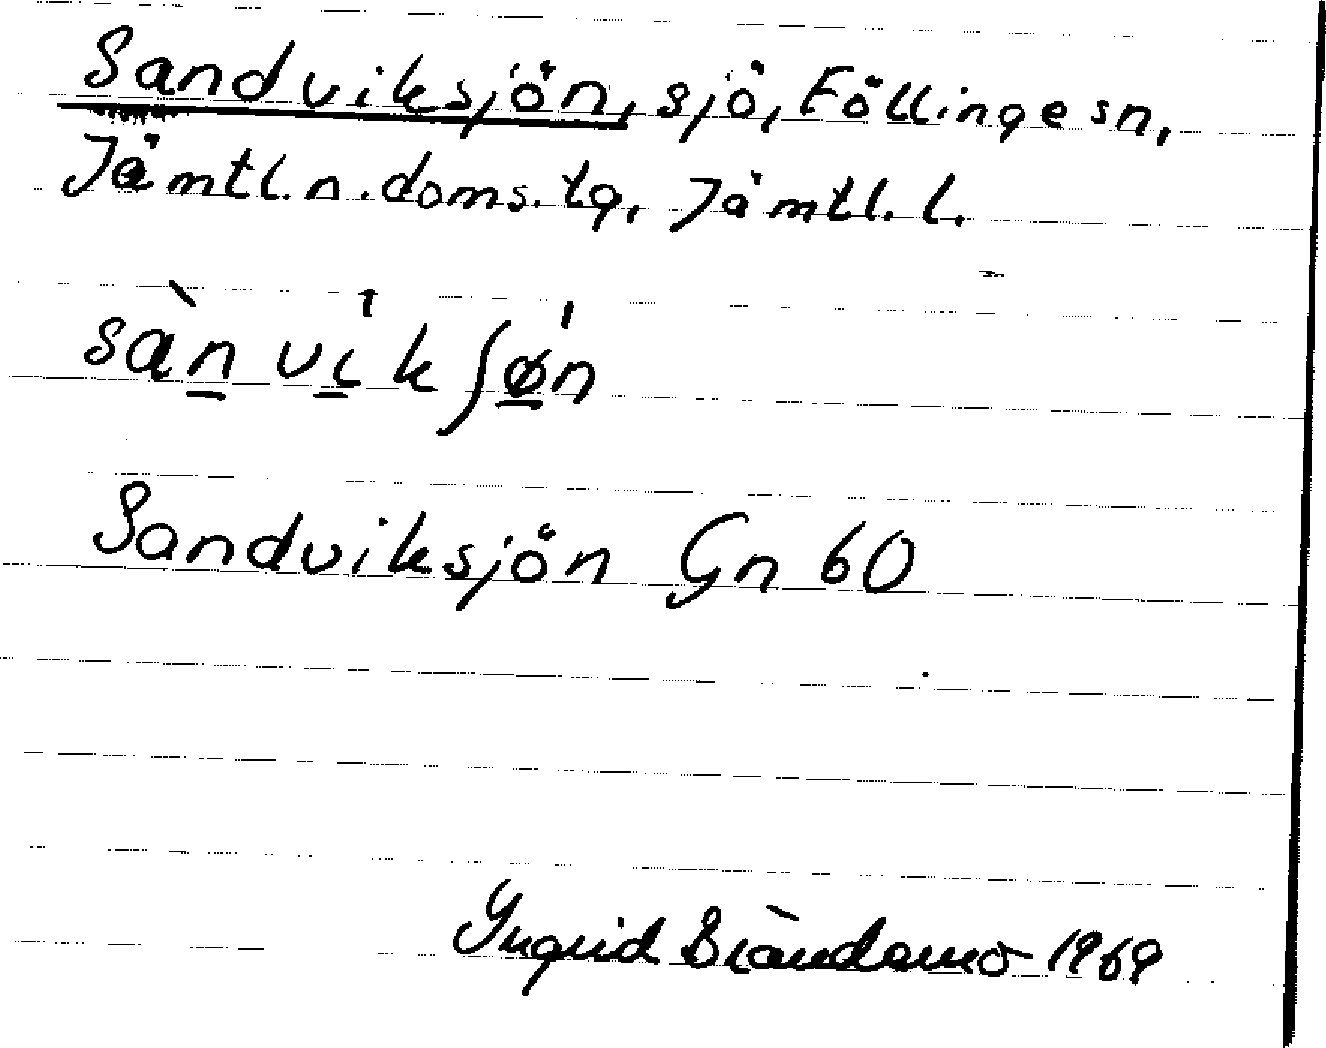 Sandviksjön, sjö, Föllinge sn,
Jämtl. n. doms. tg, Jämtl. l.
sàn̲ vi̲k ʃø̲n
Sandviksjön Gn 60
Ingrid Brändamo 1969